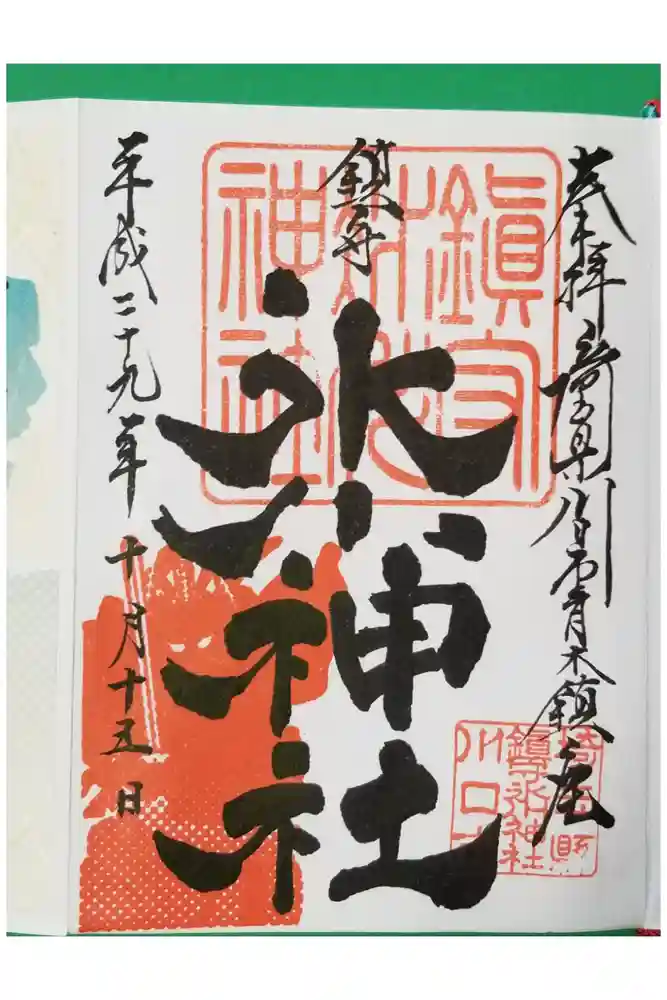 奉拝 埼玉県川口市青木鎮座
鎮守
氷川神社
平成二十九年 十月十五日
鎮守
氷川
神社
埼玉県
鎮守氷川神社
川口市